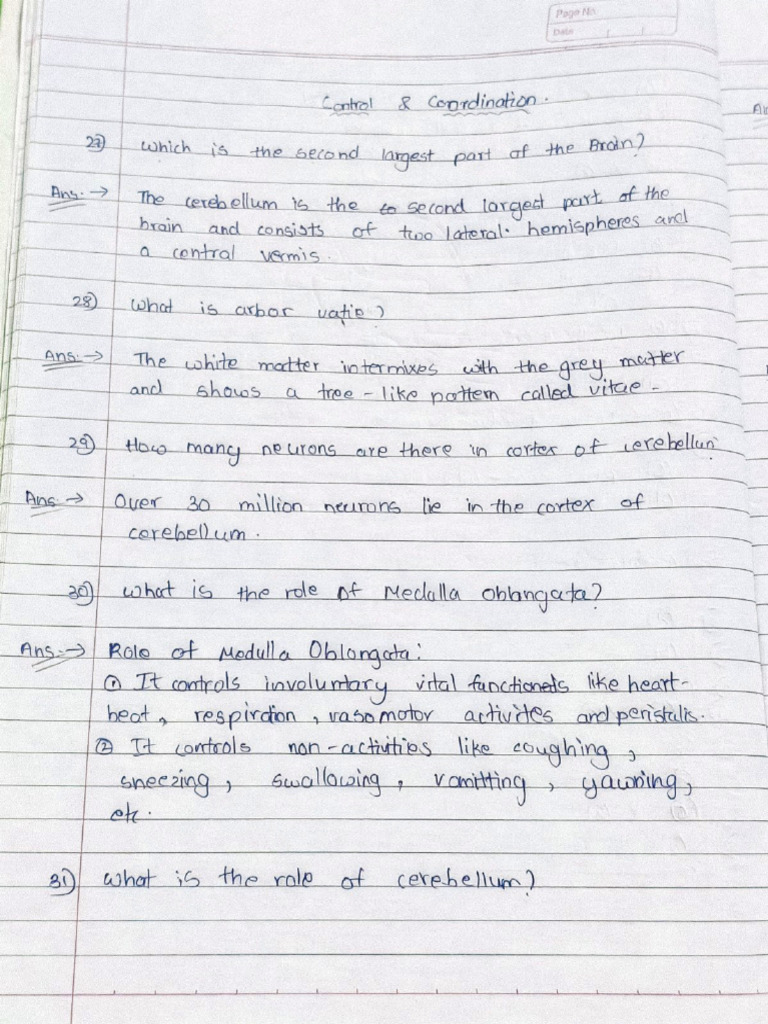 Page No.
Date
Control & Coordination.
27) Which is the second largest part of the Brain?
Ans. → The cerebellum is the to second largest part of the
brain and consists of two lateral. hemispheres and
a central vermis.
28) What is arbor vatie?
Ans. → The white matter intermixes with the grey matter
and shows a tree-like pattern called vitae.
29) How many neurons are there in cortex of cerebellum
Ans → Over 30 million neurons lie in the cortex of
cerebellum.
30) What is the role of Medulla Oblongata?
Ans. → Role of Medulla Oblongata:
① It controls involuntary vital functioneds like heart-
beat, respiration, vasomotor activites and peristalis.
② It controls non-activities like coughing,
sneezing, swallowing, vomitting, yawning,
etc.
31) What is the role of cerebellum?